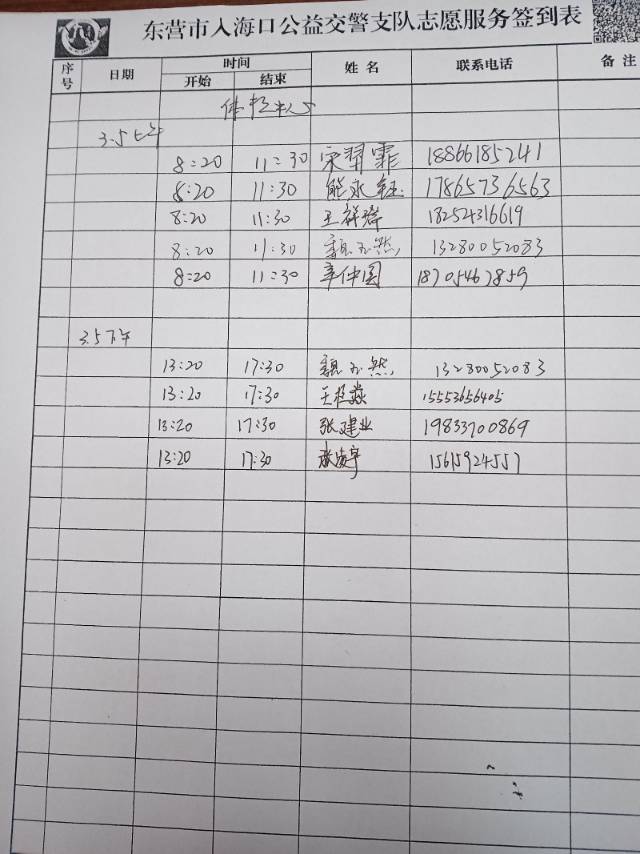 东营市入海口公益交警支队志愿服务签到表
序号 日期 时间 姓名 联系电话 备注
开始 结束
3.5上午
8:20 11:30 宋翠霏 18866185241
8:20 11:30 熊永钰 17865736563
8:20 11:30 王祥 18254316619
8:20 11:30 魏 然 13280052083
8:20 11:30 辛仲国 18705467859
3.5下午
13:20 17:30 魏 然 13280052083
13:20 17:30 王 15553656405
13:20 17:30 张建业 19833700869
13:20 17:30 宇 15615924557